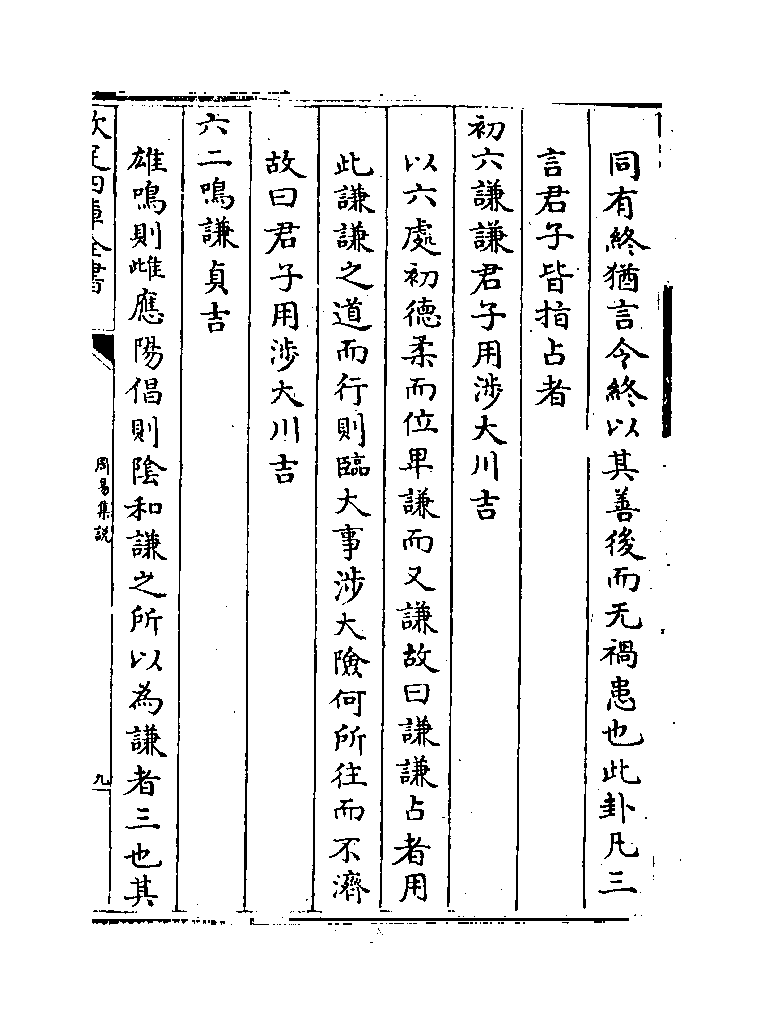 同有終猶言令終以其善後而无禍患也此卦凡三
言君子皆指占者
初六謙謙君子用涉大川吉
以六處初德柔而位卑謙而又謙故曰謙謙占者用
此謙謙之道而行則臨大事涉大險何所往而不濟
故曰君子用涉大川吉
六二鳴謙貞吉
雄鳴則雌應陽倡則陰和謙之所以為謙者三也其
欽定四庫全書
周易集說
九